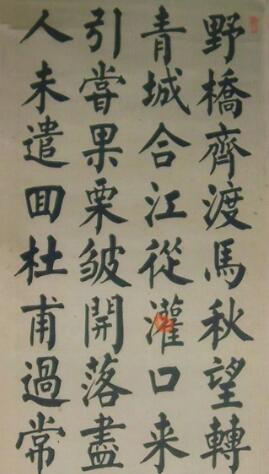 野橋齊渡馬秋望轉
青城合江從灌口来
引嘗果栗皱開落盡
人未遣囬杜甫過常